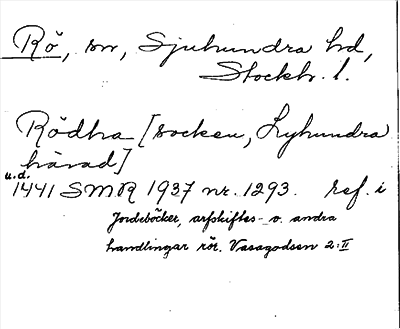 Rö, sn, Sjuhundra hd,
Stockh. l.
Rödha [socken, Lyhundra
härad]
u.d.
1441 SMR 1937 nr. 1293. ref. i
Jordeböcker, arfskiftes- o. andra
handlingar rör. Vasagodsen 2:II